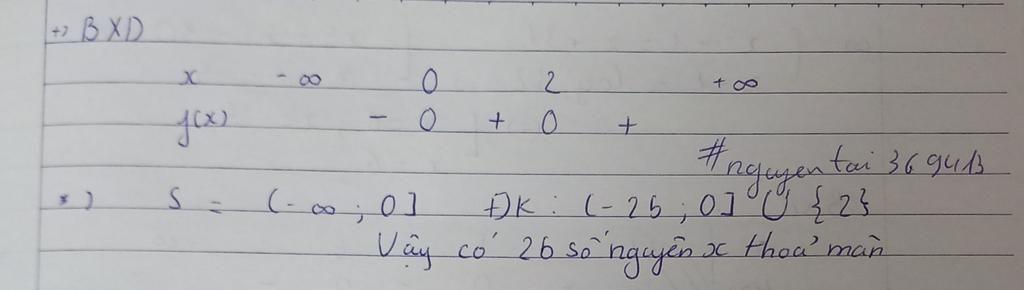 +) BXD
x -∞ 0 2 +∞
f(x) - 0 + 0 +
#nguyentai369413
*) S = (-∞; 0] ĐK: (-25; 0] ∪ {2}
Vậy có 26 số nguyên x thoả mãn